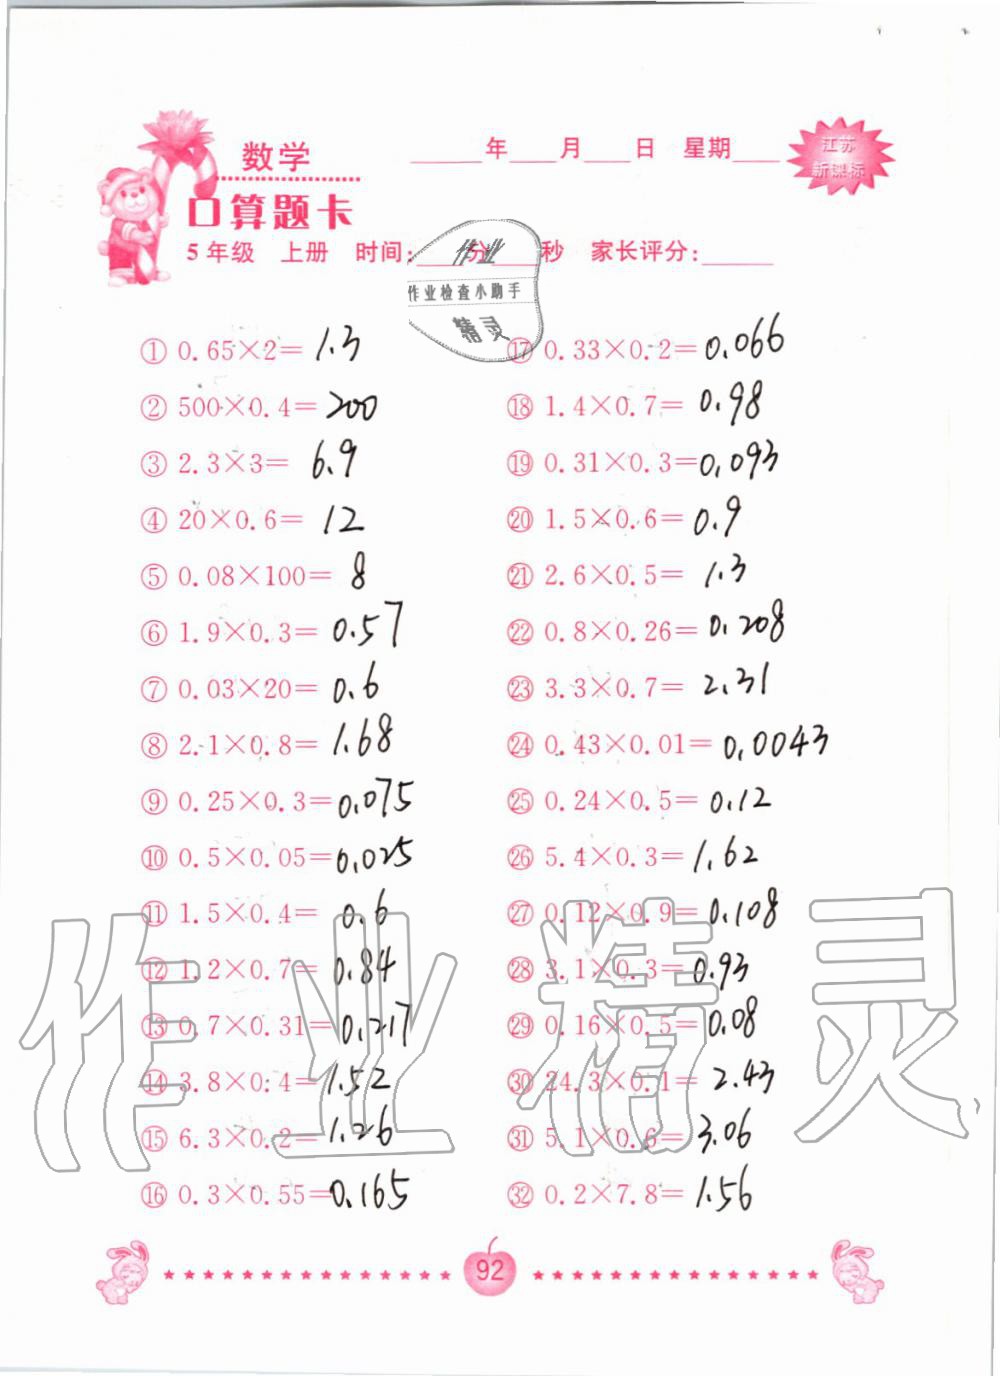 数学
____年____月____日 星期____
江苏
新课标
口算题卡
5年级 上册 时间:____分____秒 家长评分:____
作业
作业检查小助手
精灵
① 0.65×2= 1.3
② 500×0.4= 200
③ 2.3×3= 6.9
④ 20×0.6= 12
⑤ 0.08×100= 8
⑥ 1.9×0.3= 0.57
⑦ 0.03×20= 0.6
⑧ 2.1×0.8= 1.68
⑨ 0.25×0.3= 0.075
⑩ 0.5×0.05= 0.025
⑪ 1.5×0.4= 0.6
⑫ 1.2×0.7= 0.84
⑬ 0.7×0.31= 0.217
⑭ 3.8×0.4= 1.52
⑮ 6.3×0.2= 1.26
⑯ 0.3×0.55= 0.165
⑰ 0.33×0.2= 0.066
⑱ 1.4×0.7= 0.98
⑲ 0.31×0.3= 0.093
⑳ 1.5×0.6= 0.9
㉑ 2.6×0.5= 1.3
㉒ 0.8×0.26= 0.208
㉓ 3.3×0.7= 2.31
㉔ 0.43×0.01= 0.0043
㉕ 0.24×0.5= 0.12
㉖ 5.4×0.3= 1.62
㉗ 0.12×0.9= 0.108
㉘ 3.1×0.3= 0.93
㉙ 0.16×0.5= 0.08
㉚ 24.3×0.1= 2.43
㉛ 5.1×0.6= 3.06
㉜ 0.2×7.8= 1.56
作业精灵
92